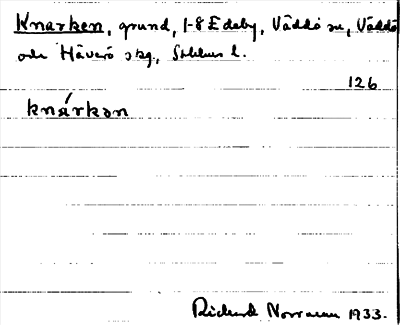 Knarken, grund, 1-8 Edeby, Väddö sn, Väddö
och Häverö skg, Sthlms l.
126
knárkən
Richard Norrman 1933.